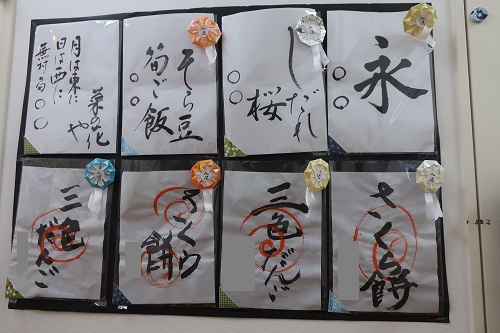 永
しだれ
桜
そら豆
筍ご飯
菜の花や
月は東に
日は西に
蕪村 句
さくら餅
三色だんご
さくら餅
三色だんご